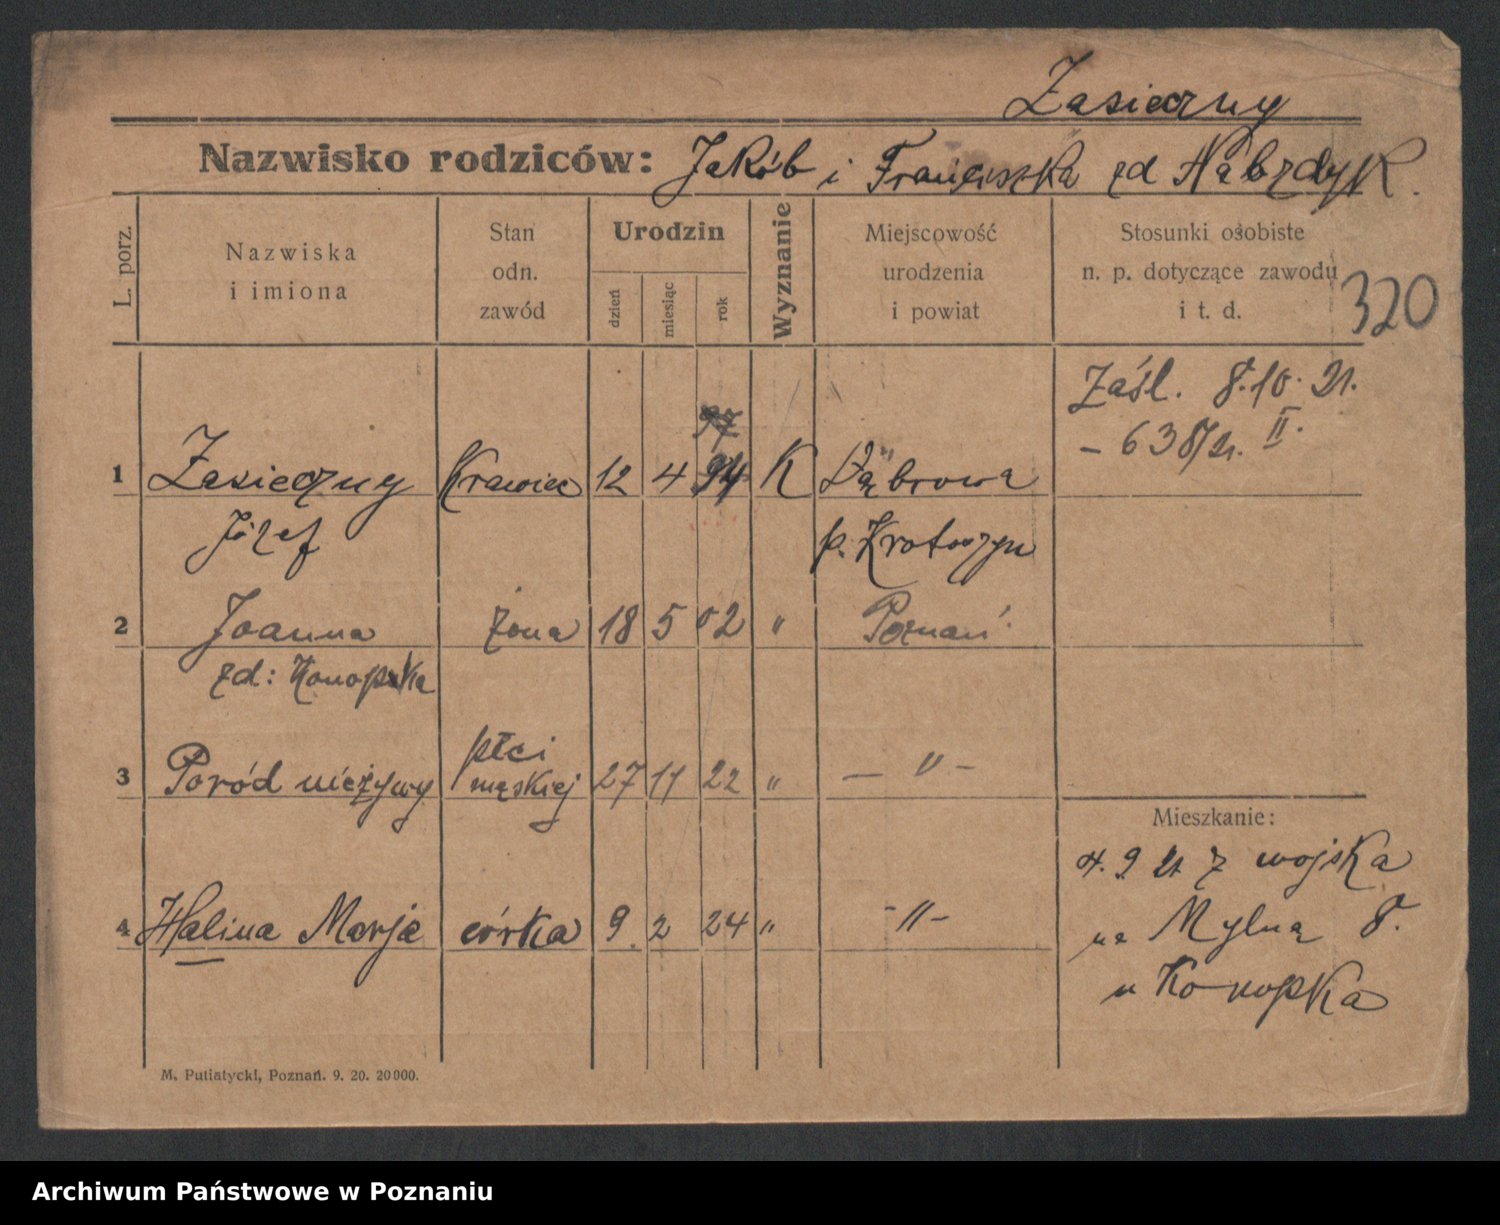 Zasieczny
Nazwisko rodziców: Jakób i Franciszka zd Nabzdyk.
L. porz.
Nazwiska
i imiona
Stan
odn.
zawód
Urodzin
dzień
miesiąc
rok
Wyznanie
Miejscowość
urodzenia
i powiat
Stosunki osobiste
n. p. dotyczące zawodu
i t. d.
320
Zaśl. 8.10.21.
– 638/21. II.
97
1 Zasieczny Krawiec 12 4 94 K Dąbrowa
Józef p. Krotoszyn
2 Joanna żona 18 5 02 " Poznań
zd: Konopska
płci
3 Poród nieżywy męskiej 27 11 22 " — " —
Mieszkanie:
4. 9 21 z wojska
4 Halina Marja córka 9. 2 24 " - " -
na Mylną 8.
u Konopska
M. Putiatycki, Poznań. 9. 20. 20 000.
Archiwum Państwowe w Poznaniu